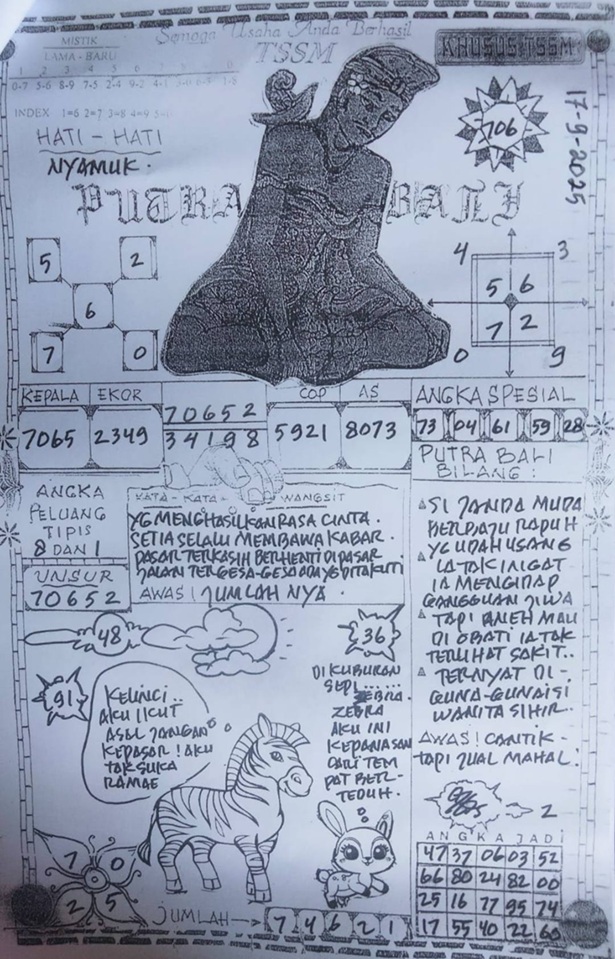 Semoga Usaha Anda Berhasil
MISTIK
LAMA - BARU
TSSM
KHUSUS TSSM
1 2 3 4 5 6
0-7 5-6 8-9 7-5 2-4 9-2 4-1
INDEX 1=6 2=7 3=8 4=9
HATI - HATI
NYAMUK.
706
17-9-2025
PUTRA BALI
5 2
6
7 0
4 3
5 6
7 2
0 9
KEPALA EKOR
7065 2349
70652
34198
COP AS
5921 8073
ANGKA SPESIAL
73 04 61 59 28
ANGKA
PELUANG
TIPIS
8 DAN 1
UNSUR
70652
KATA - KATA - WANGSIT
YG MENGHASILKAN RASA CINTA.
SETIA SELALU MEMBAWA KABAR.
DASAR TERKASIH BERHENTI DI PASAR
JALAN TERGESA-GESA ADA YG DITAKUTI
AWAS! JUMLAH NYA.
PUTRA BALI
BILANG:
SI JANDA MUDA
BERBAJU RAPUH
YG UDAH USANG
IA TAK INGAT
IA MENGIDAP
GANGGUAN JIWA
TAPI ANEH MAU
DI OBATI IA TAK
TERLIHAT SAKIT..
TERNYAT DI-
GUNA-GUNAI SI
WANITA SIHIR.
AWAS! CANTIK-
TAPI JUAL MAHAL!
48
91
KELINCI..
AKU IKUT
ASAL JANGAN
KEPASAR! AKU
TAK SUKA
RAMAE
36
DI KUBURAN
SEPI.....
ZEBRA.
ZEBRA
AKU INI
KEPANASAN
CARI TEM
PAT BER-
TEDUH.
2
ANGKA JADI
47 37 06 03 52
66 80 24 82 00
25 16 77 95 74
17 55 40 22 60
7 0
2 5
JUMLAH
7 4 6 2 1